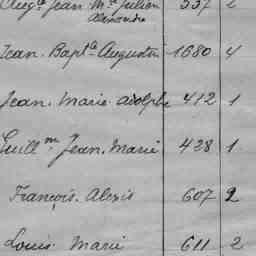 Aug.te Jean M.ie Julien 537 2
Alexandre
Jean Bapt.te Augustin 1680 4
Jean Marie adolphe 412 1
Guill.m Jean Marie 428 1
François Alexis 607 2
Louis Marie 611 2